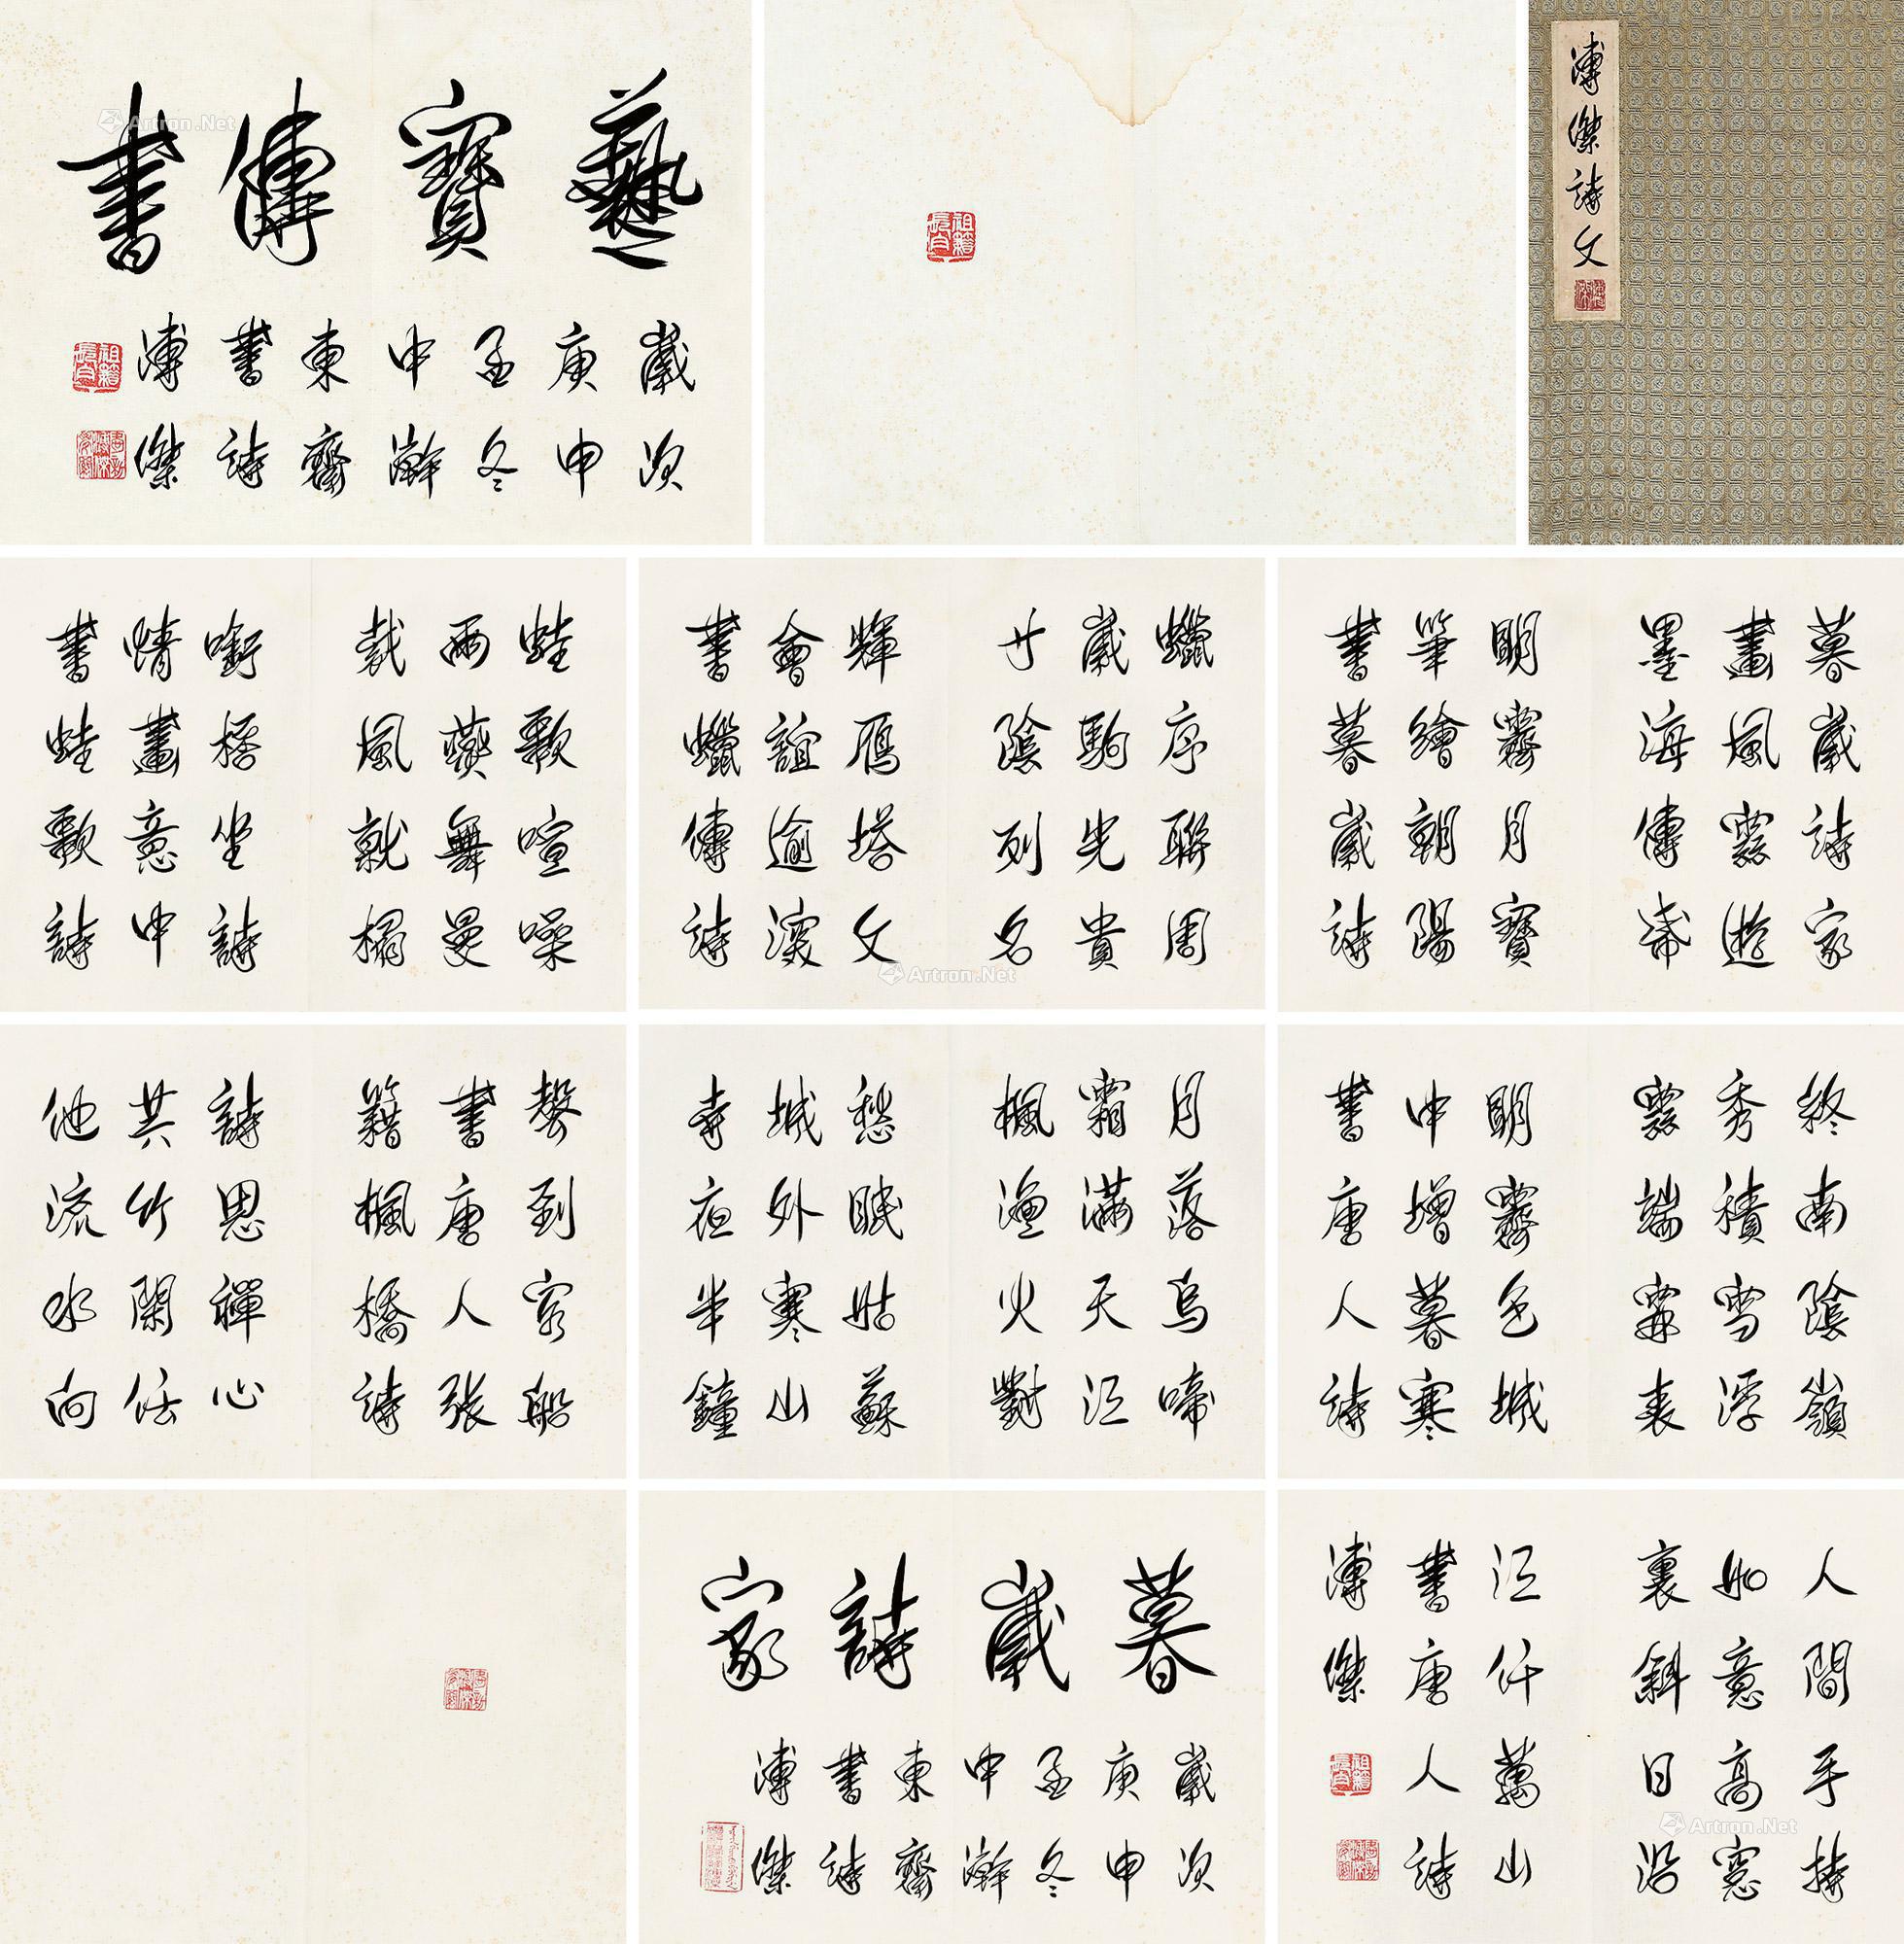 溥傑詩文
祖籍長白
藝寶傳書
歲次
庚申
孟冬
中澣
東齋
書詩
溥傑
祖籍長白
暮歲詩家
畫風雲遊
墨海傳希
明霽月寶
筆繪朝陽
書暮歲詩
蠟序聯周
歲駒先貴
寸陰列名
輝雁塔文
會誼逾深
書蠟傳詩
蛙歌喧噪
雨燕舞曼
裁風就榻
坐詩
情畫意中
書蛙歌詩
終南陰嶺
秀積雪浮
雲端霖表
明霽色城
中增暮寒
書唐人詩
月落烏啼
霜滿天江
楓漁火對
愁眠姑蘇
城外寒山
寺夜半鐘
聲到客船
書唐人張
籍楓橋詩
詩思禪心
共竹閑任
他流水向
人間手持
如意高窗
裏斜日沿
江仟萬山
書唐人詩
溥傑
祖籍長白
暮歲詩家
歲次
庚申
孟冬
中澣
東齋
書詩
溥傑
Artron.Net
Artron.Net
Artron.Net